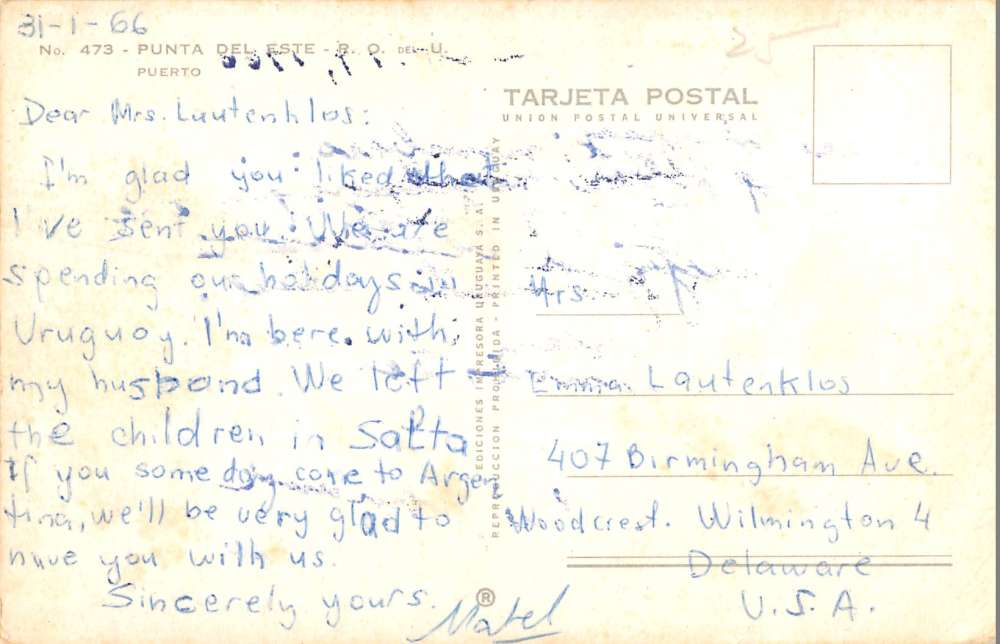 31-1-66
No. 473 - PUNTA DEL ESTE - R. O. DEL U.
PUERTO
TARJETA POSTAL
UNION POSTAL UNIVERSAL
25
Dear Mrs. Lautenklos:
I'm glad you liked that
I've sent you. We are
spending our holidays in
Uruguay. I'm here with
my husband. We left
the children in Salta
If you some day come to Argen
tina, we'll be very glad to
have you with us.
Sincerely yours.
EDICIONES IMPRESORA URUGUAYA S. A.
REPRODUCCION PROHIBIDA - PRINTED IN URUGUAY
®
Mrs
Emma Lautenklos
407 Birmingham Ave.
Woodcrest. Wilmington 4
Delaware
U.S.A.